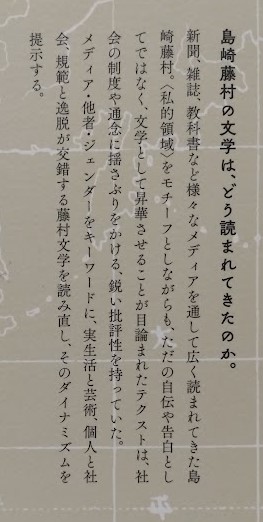 島崎藤村の文学は、どう読まれてきたのか。
新聞、雑誌、教科書など様々なメディアを通して広く読まれてきた島
崎藤村。〈私的領域〉をモチーフとしながらも、ただの自伝や告白とし
てではなく、文学として昇華させることが目論まれたテクストは、社
会の制度や通念に揺さぶりをかける、鋭い批評性を持っていた。
メディア・他者・ジェンダーをキーワードに、実生活と芸術、個人と社
会、規範と逸脱が交錯する藤村文学を読み直し、そのダイナミズムを
提示する。